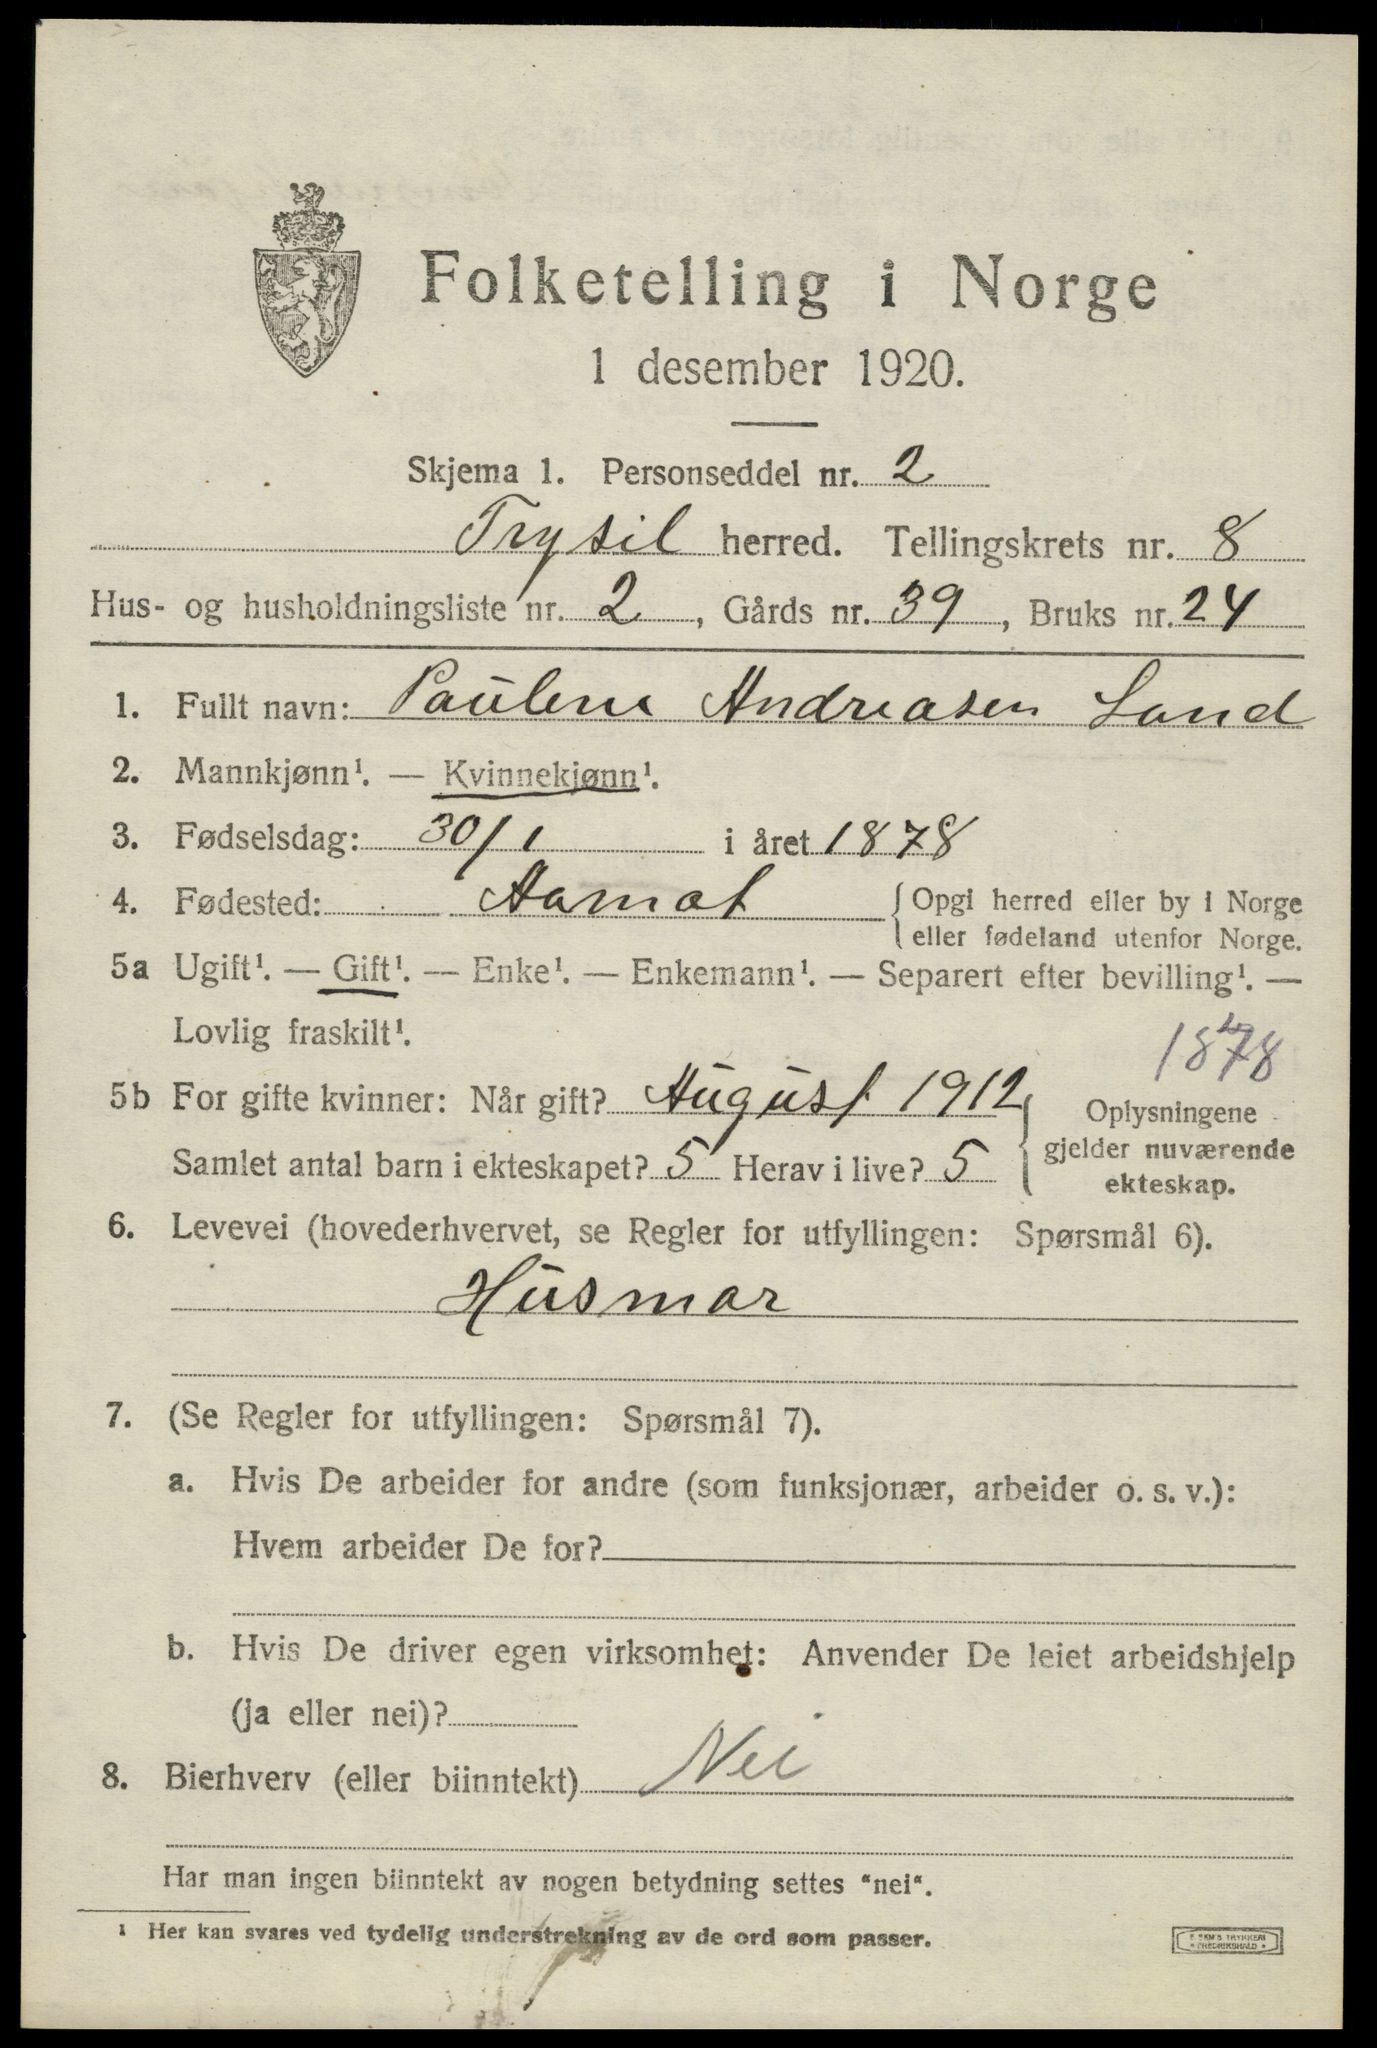 Folketelling i Norge
1 desember 1920.
Skjema 1. Personseddel nr. 2
Trysil herred. Tellingskrets nr. 8
Hus- og husholdningsliste nr. 2, Gårds nr. 39, Bruks nr. 24
1. Fullt navn: Paulene Andreasen Sand
2. Mannkjønn¹. — Kvinnekjønn¹.
3. Fødselsdag: 30/1 i året 1878
4. Fødested: Aamot {Opgi herred eller by i Norge
eller fødeland utenfor Norge.
5a Ugift¹. — Gift¹. — Enke¹. — Enkemann¹. — Separert efter bevilling¹. —
Lovlig fraskilt¹.
1878
5b For gifte kvinner: Når gift? August 1912
Samlet antal barn i ekteskapet? 5 Herav i live? 5
Oplysningene
gjelder nuværende
ekteskap.
6. Levevei (hovederhvervet, se Regler for utfyllingen: Spørsmål 6).
Husmor
7. (Se Regler for utfyllingen: Spørsmål 7).
a. Hvis De arbeider for andre (som funksjonær, arbeider o. s. v.):
Hvem arbeider De for?
b. Hvis De driver egen virksomhet: Anvender De leiet arbeidshjelp
(ja eller nei)?
8. Bierhverv (eller biinntekt) Nei
Har man ingen biinntekt av nogen betydning settes "nei".
¹ Her kan svares ved tydelig understrekning av de ord som passer.